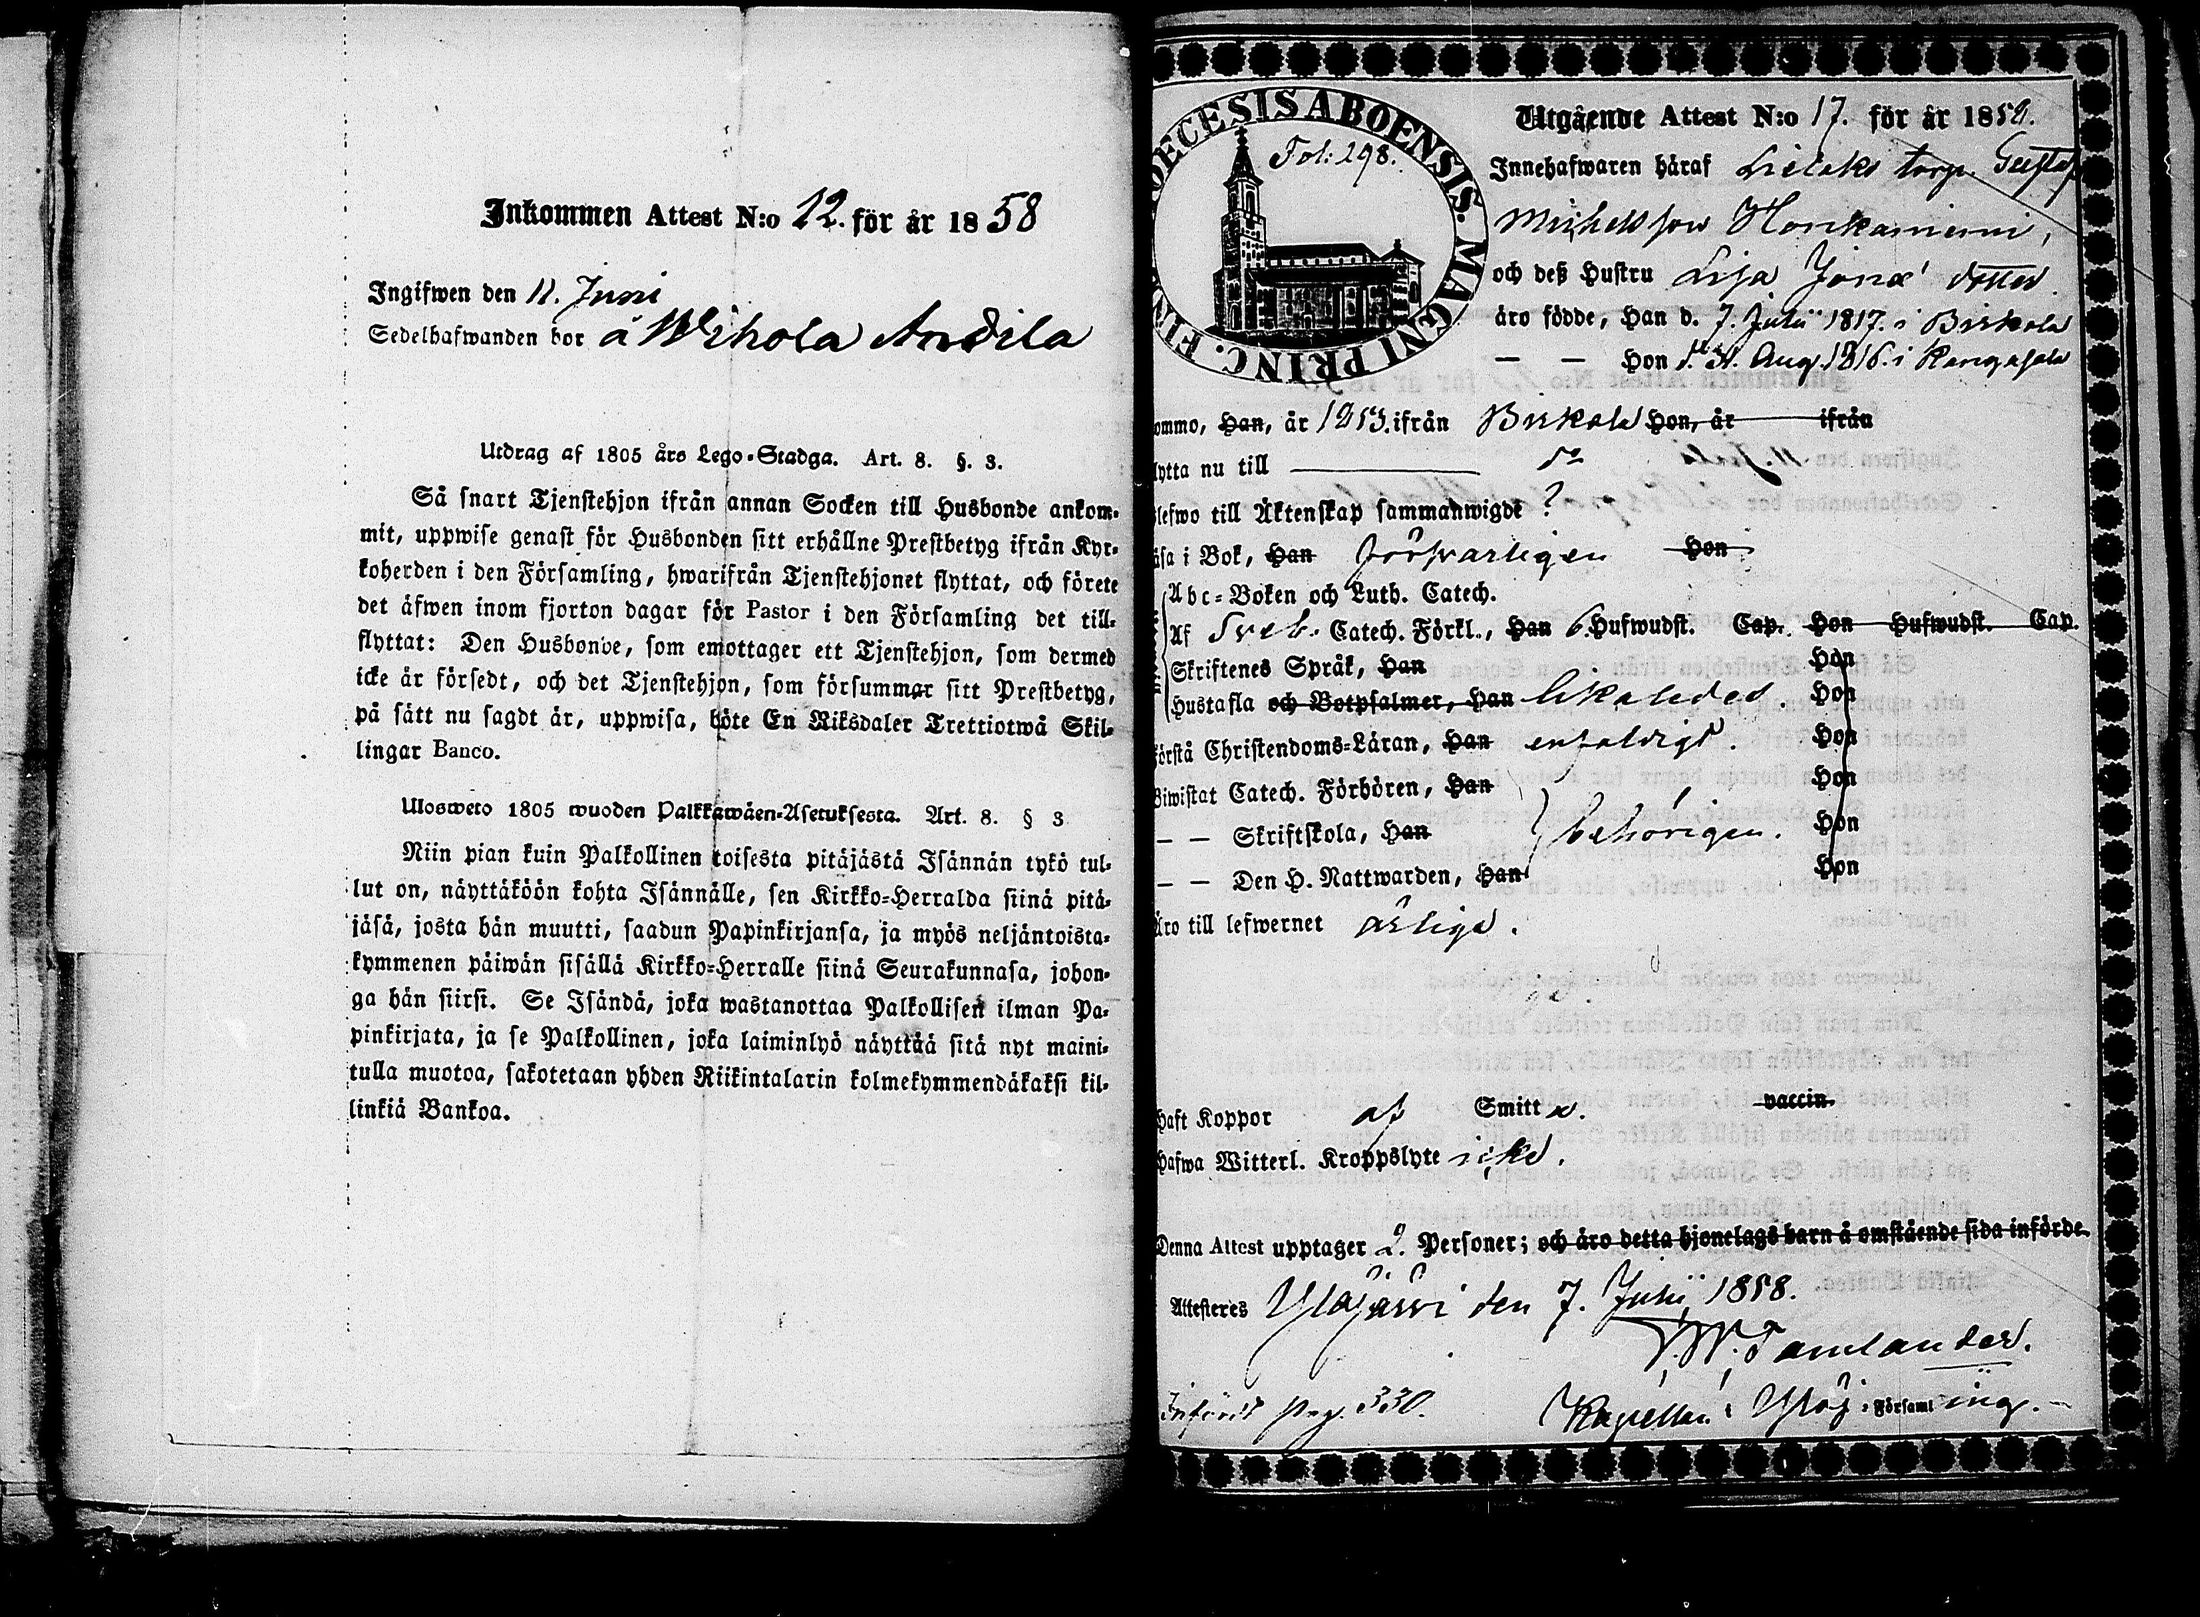 Inkommen Attest N:o 12. för år 1858
Ingifwen den 11. Juni
Sedelhafwanden bor å Wihola Andila
Utdrag af 1805 års Lego-Stadga. Art. 8. §. 3.
Så snart Tjenstehjon ifrån annan Socken till Husbonde ankom-
mit, uppwise genast för Husbonden sitt erhållne Prestbetyg ifrån Kyr-
koherden i den Församling, hwarifrån Tjenstehjonet flyttat, och förete
det äfwen inom fjorton dagar för Pastor i den Församling det till-
flyttat: Den Husbonde, som emottager ett Tjenstehjon, som dermed
icke är försedt, och det Tjenstehjon, som försummar sitt Prestbetyg,
på sätt nu sagdt är, uppwisa, böte En Riksdaler Trettiotwå Skil-
lingar Banco.
Ulosweto 1805 wuoden Palkkawäen-Asetuksesta. Art. 8. § 3
Niin pian kuin Palkollinen toisesta pitäjästä Isännän tykö tul-
lut on, näyttäköön kohta Isännälle, sen Kirkko-Herralda siinä pitä-
jäsä, josta hän muutti, saadun Papinkirjansa, ja myös neljäntoista-
kymmenen päiwän sisällä Kirkko-Herralle siinä Seurakunnasa, johon-
ga hän siirsi. Se Isändä, joka wastanottaa Palkollisen ilman Pa-
pinkirjata, ja se Palkollinen, joka laiminlyö näyttää sitä nyt maini-
tulla muotoa, sakotetaan yhden Riikintalarin kolmekymmendäkaksi kil-
linkiä Bankoa.
DIOECESIS ABOENSIS. MAGNI PRINC. FIN
Fol: 298.
Utgående Attest N:o 17. för år 1858.
Innehafwaren häraf torp. Gustaf
Michelsson Honkaniemi,
och deß Hustru Lisa Jonæ dotter
äro födde, Han d. 7. Julii 1817. i Birkala
— — Hon d. 31. Aug. 1816. i Kangasala
ommo, Han, år 1853. ifrån Birkala Hon, år ifrån
lytta nu till do
blefwo till Äktenskap sammanwigde ?
äsa i Bok, Han försvarligen Hon
Abc-Boken och Luth. Catech.
Af Sveb. Catech. Förkl., Han 6. Hufwudst. Cap. Hon Hufwudst. Cap.
Skriftenes Språk, Han Hon
Hustafla och Botpsalmer, Han likaledes Hon
örstå Christendoms-Läran, Han enfaldigt. Hon
Biwistat Catech. Förhören, Han Hon
— — Skriftskola, Han behörigen. Hon
— — Den H. Nattwarden, Han Hon
Äro till lefwernet ärliga.
Haft Koppor af Smitta. vaccin.
Hafwa Witterl. Kroppslyte icke.
Denna Attest upptager 2. Personer; och äro detta hjonelags barn å omstående sida införde.
Attesteres Ylöjärvi den 7. Julii 1858.
W. Tamlander.
Infördt pag. 330. Kapellan i Ylöj. Församling.